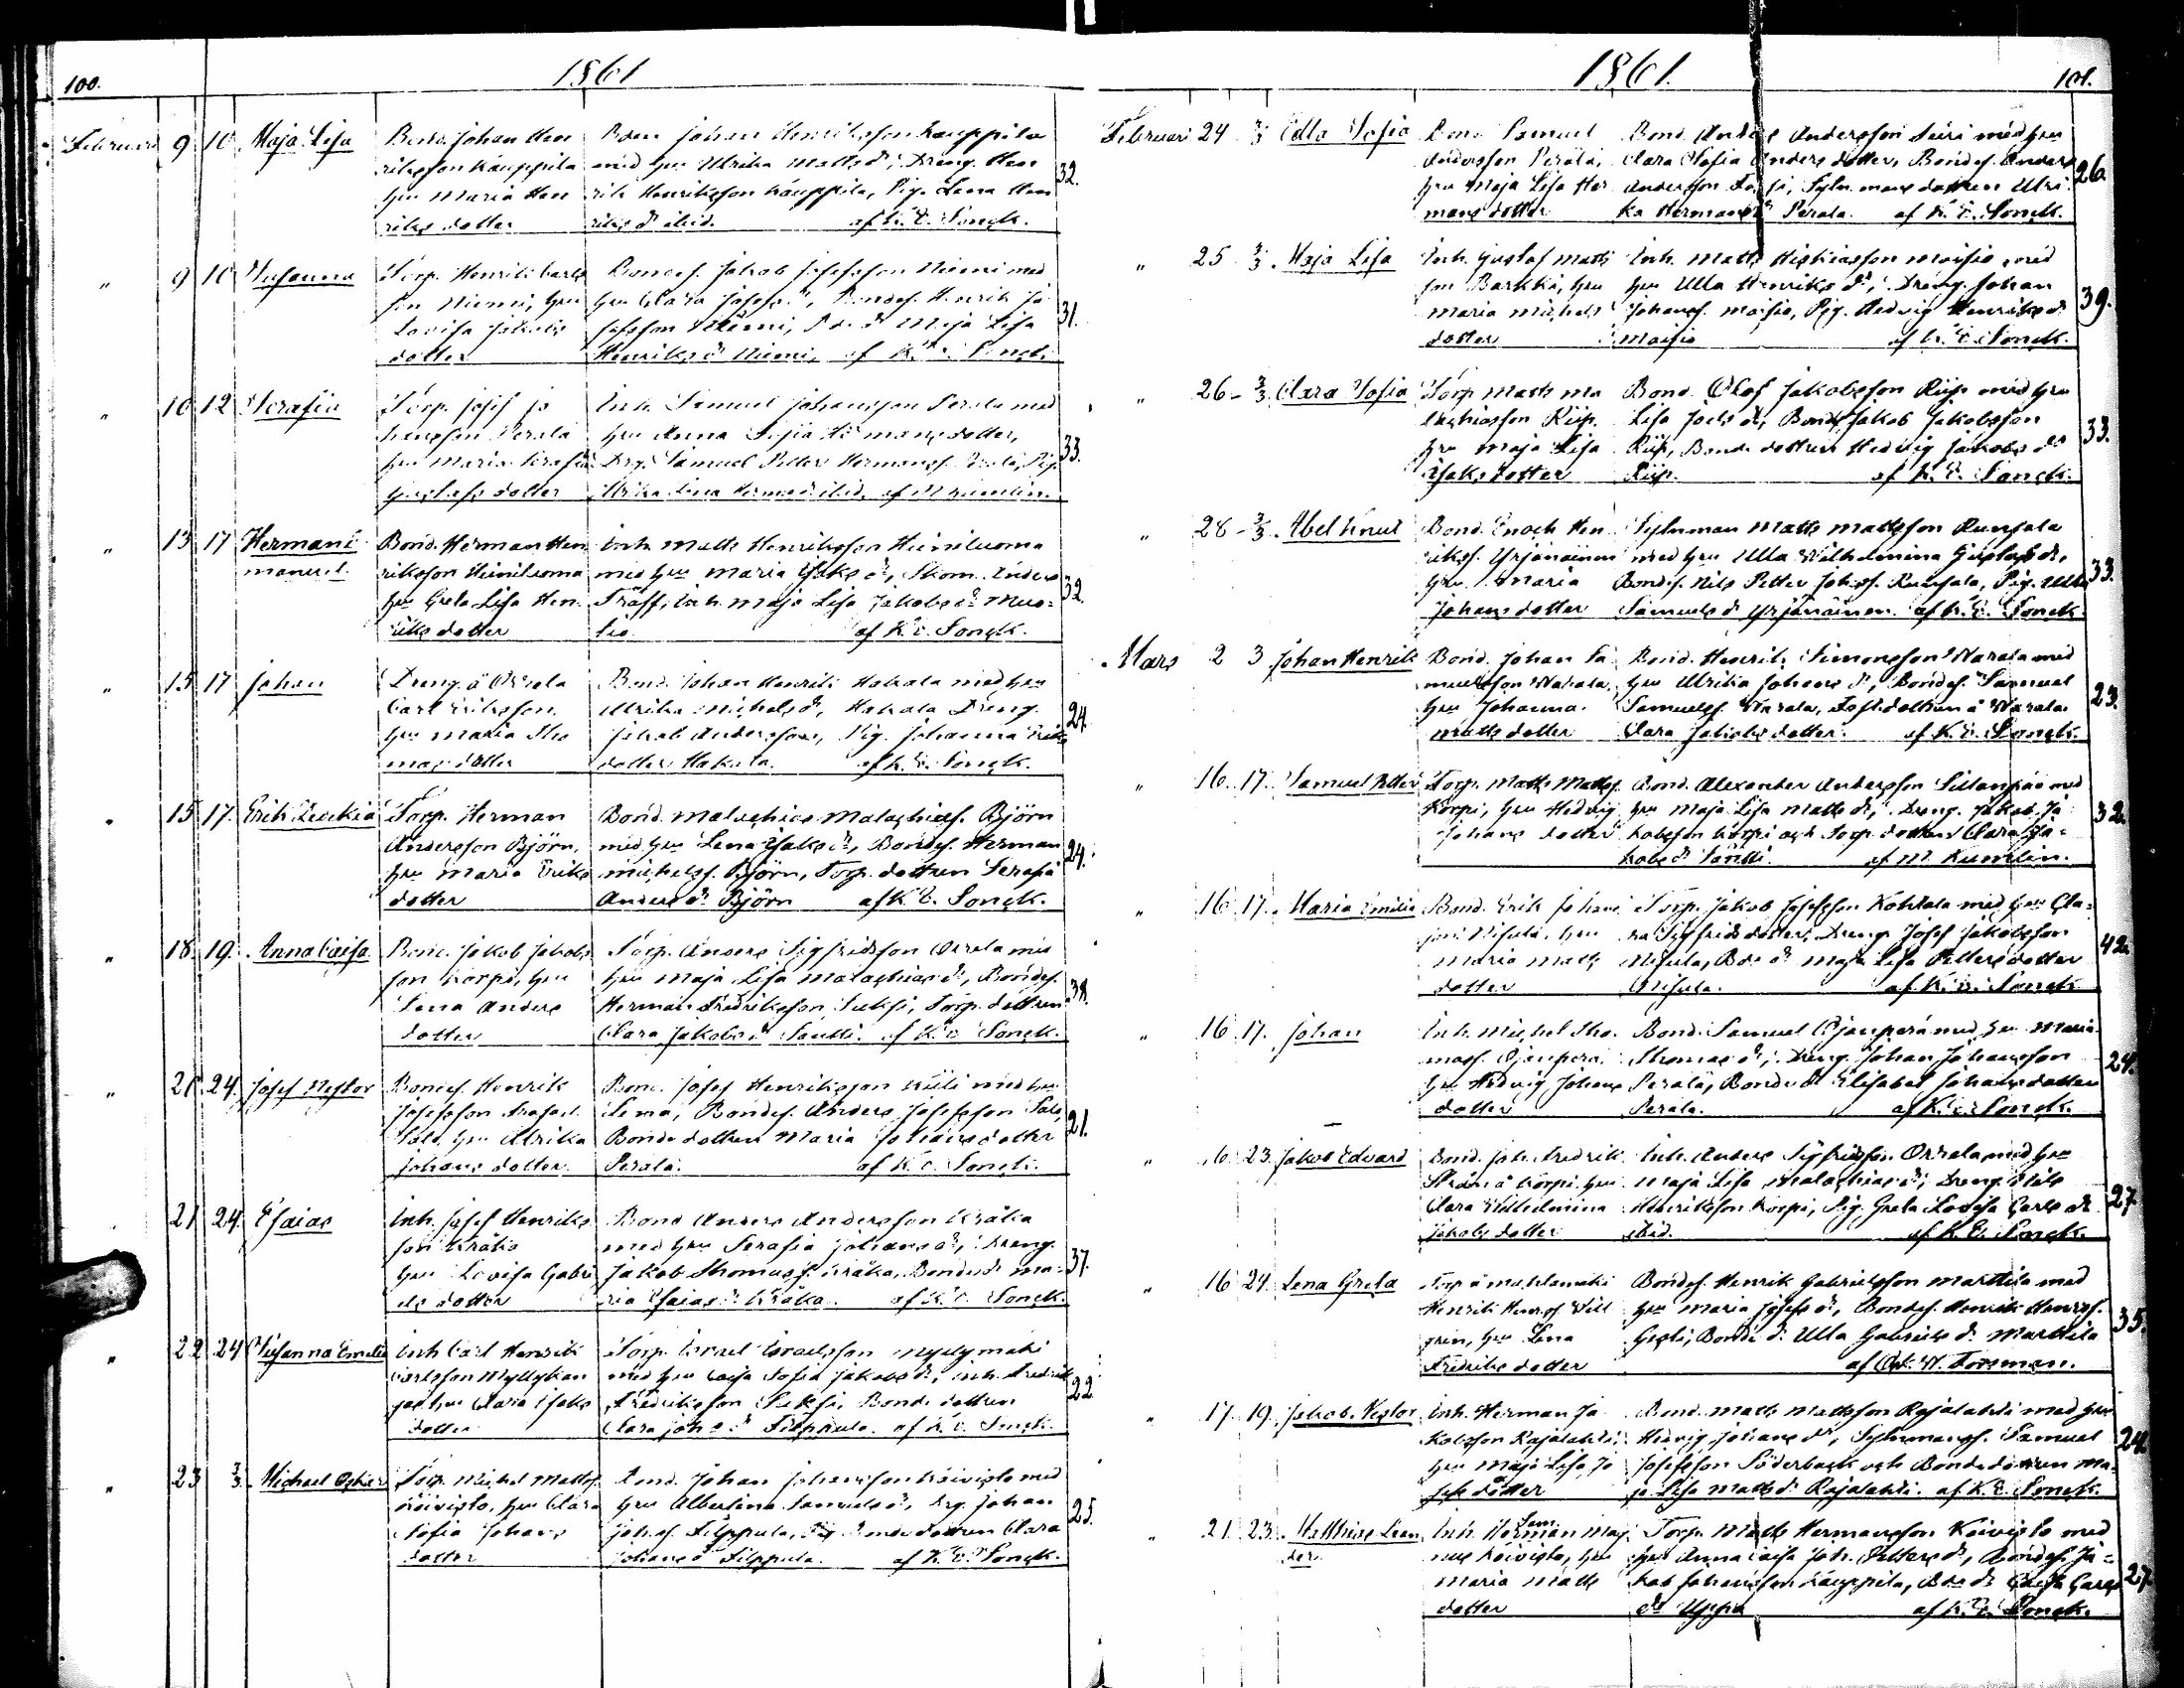 100.
1861
Februari 9 10 Maja Lisa
Bond. Johan Hen
riksson Kauppila
hru Maria Hen
riks dotter
Bon Johan Henriksson Kauppila
med hru Ulrika Matts dr, Dreng. Hen
rik Henriksson Kauppila, Pig. Lena Hen
riks dr ibid. af K. E. Sonck.
32.
" 9 10 Susanna
Torp. Henrik Carls
son Niemi, hru
Lovisa Jakobs
dotter
Bondes. Jakob Josefsson Niemi med
hru Clara Josefs dr, Bondes. Henrik Jo
sefsson Niemi, Bde dr Maja Lisa
Henriks dr Niemi, af K. E. Sonck.
31.
" 10 12 Serafia
Torp. Josef Jo
hansson Perälä
hru Maria Serafia
Gustafs dotter
Inh. Samuel Johansson Perälä med
hru Anna Hermans dotter,
Drg. Samuel Petter Hermanss. Perälä, Pig.
Ulrika Lina ibid. af M Kumlin.
33.
" 13 17 Herman
manuel
Bond. Herman Hen
riksson Heiniluoma
hru Greta Lisa Hen
riks dotter
Inh. Matts Henriksson Heiniluoma
med hru Maria Isaks dr, Skom. Anders
Träff, Inh. Maja Lisa Jakobs dr Muo-
tio. af K. E. Sonck.
32.
" 15 17 Johan
Dreng å Orrela
Carl Eriksson,
hru Maria Tho
mas dotter
Bond. Johan Henrik Hakala med hru
Ulrika Michels dr, Hakala Dreng.
Jakob Andersson, Pig. Johanna Eriks
dotter Hakala. af K. E. Sonck.
24.
" 15 17. Erik Esekia
Torp. Herman
Andersson Björn,
hru Maria Eriks
dotter
Bond. Malachias Malachiass. Björn
med hru Lena Isaks dr, Bondes. Herman
Michelss. Björn, Torp. dottren Serafia
Anders dr Björn af K. E. Sonck.
24.
" 18. 19. Anna Caisa
Bond. Jakob Jakobs
son Korpi, hru
Lena Anders
dotter
Torp. Anders Sigfridsson Orrela med
hru Maja Lisa Malachias dr, Bondes.
Herman Fredriksson Suksi, Torp. dottren
Clara Jakobs dr Santti. af K. E. Sonck.
38.
" 21. 24. Josef Nestor
Bondes. Henrik
Josefsson
Salo, hru Ulrika
Johans dotter.
Bond. Josef Henriksson med hru
Lena, Bondes. Anders Josefsson Salo,
Bonde dottren Maria Johans dotter
Perälä. af K. E. Sonck.
21.
21 24. Esaias
Inh. Josef Henriks
son Kråka
hru Lovisa Gabri
els dotter
Bond Anders Andersson Kråka
med hru Serafia Johans dr, Dreng.
Jakob Thomass. Kråka, Bonde dr Ma-
ria Esaias dr Kråka. af K. E. Sonck.
37.
" 22 24 Susanna Emelie
Inh Carl Henrik
Carlsson Myllykan
gas hru Clara Isaks
dotter
Torp. Israel Israelsson Myllymäki
med hru Caisa Sofia Jakobs dr, Inh. Fredrik
Fredriksson Suksi, Bonde dottren
Clara Johs dr Filppula. af K. E. Sonck.
22
" 23 3/3 Michael Oskar
Torp. Michel Mattss.
Koivisto, hru Clara
Sofia Johans
dotter
Bond. Johan Johansson Koivisto med
hru Albertina Samuels dr, Drg. Johan
Johss. Filppula, Bonde dottren Clara
Johans dr Filppula. af K. E. Sonck.
25.
1861.
101.
Februari 24 3/3 Edla Sofia
Bond Samuel
Andersson Perälä,
hru Maja Lisa Her
mans dotter
Bond. Anders Andersson Luiri med hru
Clara Sofia Anders dotter, Bondes. Anders
Andersson, Sytn. mans dottren Ulri
ka Hermans dr Perälä. af K. E. Sonck.
26.
" 25 3/3 Maja Lisa
Inh. Gustaf Matts
son Barkki, hru
Maria Michels
dotter
Inh. Matts Hiskiasson Maisio med
hru Ulla Henriks dr, Dreng. Johan
Johanss. Maisio, Pig. Hedvig Henriks dr
Maisio af K. E. Sonck.
39.
" 26 3/3 Clara Sofia
Torp Matts Ma
lachiasson Riip.
hru Maja Lisa
Isaks dotter
Bond. Olof Jakobsson Riip med hru
Lisa Joels dr, Bondes. Jakob Jakobsson
Riip, Bonde dottren Hedvig Jakobs dr
Riip. af K. E. Sonck.
33.
" 28 3/3 Abel Knut
Bond. Enoch Hen
rikss. Yrjänäinen
hru Maria
Johans dotter
Sytnman Matts Mattsson Ruusala
med hru Ulla Wilhelmina Gustafs dr,
Bondes. Nils Petter Johss. Ruusala, Pig. Ulla
Samuels dr Yrjänäinen. af K. E. Sonck
33.
Mars 2 3 Johan Henrik
Bond. Johan Sa
muelsson Warala,
hru Johanna
Matts dotter
Bond. Henrik Simonsson Warala med
hru Ulrika Johans dr, Bondes. Samuel
Samuelss. Warala, dottren å Warala
Clara Jakobs dotter. af K. E. Sonck.
23.
" 16. 17. Samuel Petter
Torp. Matts Mattss.
Korpi, hru Hedvig
Johans dotter
Bond. Alexander Andersson Sillanpää med
hru Maja Lisa Matts dr, Dreng. Jakob Ja
kobsson Korpi och Torp. dottren Clara Ja-
kobs dr Santti. af M. Kumlin.
32.
" 16 17. Maria Emilie
Bond. Erik Johans
son Nisula, hru
Maria Matts
dotter
Torp. Jakob Josefsson Kohtala med hru Cla-
ra Sigfrids dotter, Dreng Josef Jakobsson
Nisula, Bde dr Maja Lisa Petters dotter
Nisula. af K. E. Sonck
42.
" 16 17. Johan
Inh. Michel Tho
mass. Ojanperä
hru Hedvig Johans
dotter
Bond. Samuel Ojanperä med hru Maria
Thomas dr, Dreng. Johan Johansson
Perälä, Bonde dr Elisabet Johans dotter
Perälä. af K. E. Sonck.
24.
" 16. 23. Jakob Edvard
Bond. Joh. Fredrik
Ström å Korpi, hru
Clara Wilhelmina
Jakobs dotter
Inh. Anders Sigfridsson Orrela med hru
Maja Lisa Malachias dr, Dreng Nils
Henriksson Korpi, Pig. Greta Lovisa Carls dr
ibid. af K. E. Sonck.
27
" 16 24. Lena Greta
Torp å
Henrik Henrss Vill
gren, hru Lena
Fredriks dotter
Bondes. Henrik Gabrielsson Marttila med
hru Maria Josefs dr, Bondes. Henrik Henrss.
Bonde dr Ulla Gabriels dr Marttila
af W. Forsman.
35.
" 17. 19. Jakob Nestor
Inh. Herman Ja
kobsson Rajalahti,
hru Maja Lisa Jo
sefs dotter
Bond. Matts Mattsson Rajalahti med hru
Hedvig Johans dr, Sytnmanss. Samuel
Josefsson Söderback och Bonde dottren Ma
ja Lisa Matts dr Rajalahti. af K. E. Sonck.
24.
" 21. 23. Matthias Lean
der
Inh. Herman Mag
nus Koivisto, hru
Maria Matts
dotter
Torp. Matts Hermansson Koivisto med
hru Anna Caisa Joh. Petters dr, Bondes. Ja-
kob Johansson Kauppila, Bde dr Caisa Carls
dr Uppa af K. E. Sonck.
27.